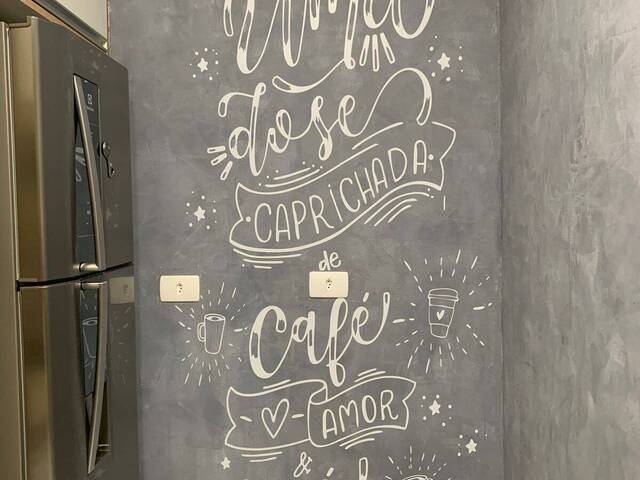 dose
CAPRICHADA
de
Café
AMOR
&